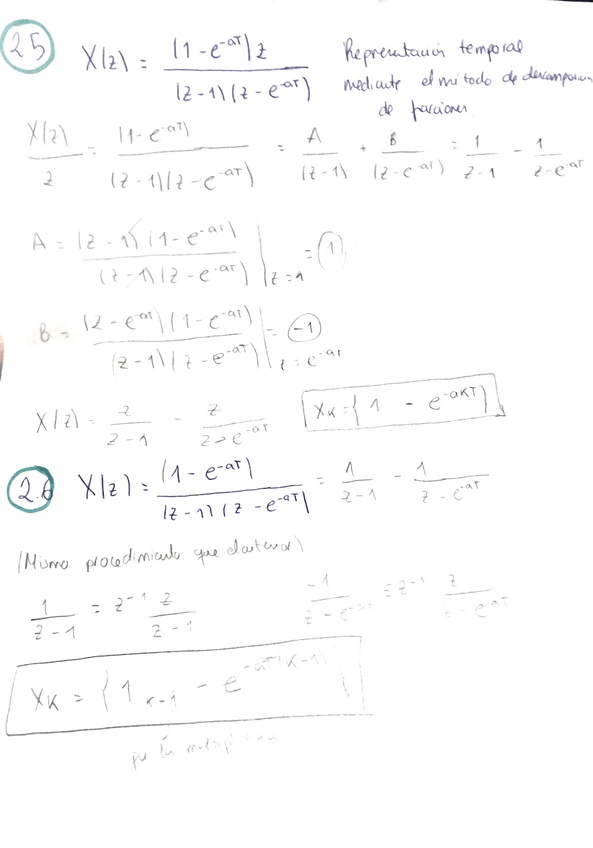 2.5 X(z) = (1-e^-aT)z / (z-1)(z-e^-aT) Representación temporal
mediante el método de descomposición
de fracciones.
X(z)/z = (1-e^-aT) / (z-1)(z-e^-aT) = A/(z-1) + B/(z-e^-aT) = 1/z-1 - 1/z-e^-aT
A = (z-1)(1-e^-aT) / (z-1)(z-e^-aT) | z=1 = 1
B = (z-e^-aT)(1-e^-aT) / (z-1)(z-e^-aT) | z=e^-aT = -1
X(z) = z/z-1 - z/z-e^-aT Xk = {1 - e^-akT}
2.6 X(z) = (1-e^-aT) / (z-1)(z-e^-aT) = 1/z-1 - 1/z-e^-aT
(Mismo procedimiento que el anterior)
1/z-1 = z^-1 z/z-1 -1/z-e^-aT = z^-1 z/z-e^-aT
Xk = {1 k-1 - e^-aT(k-1)}